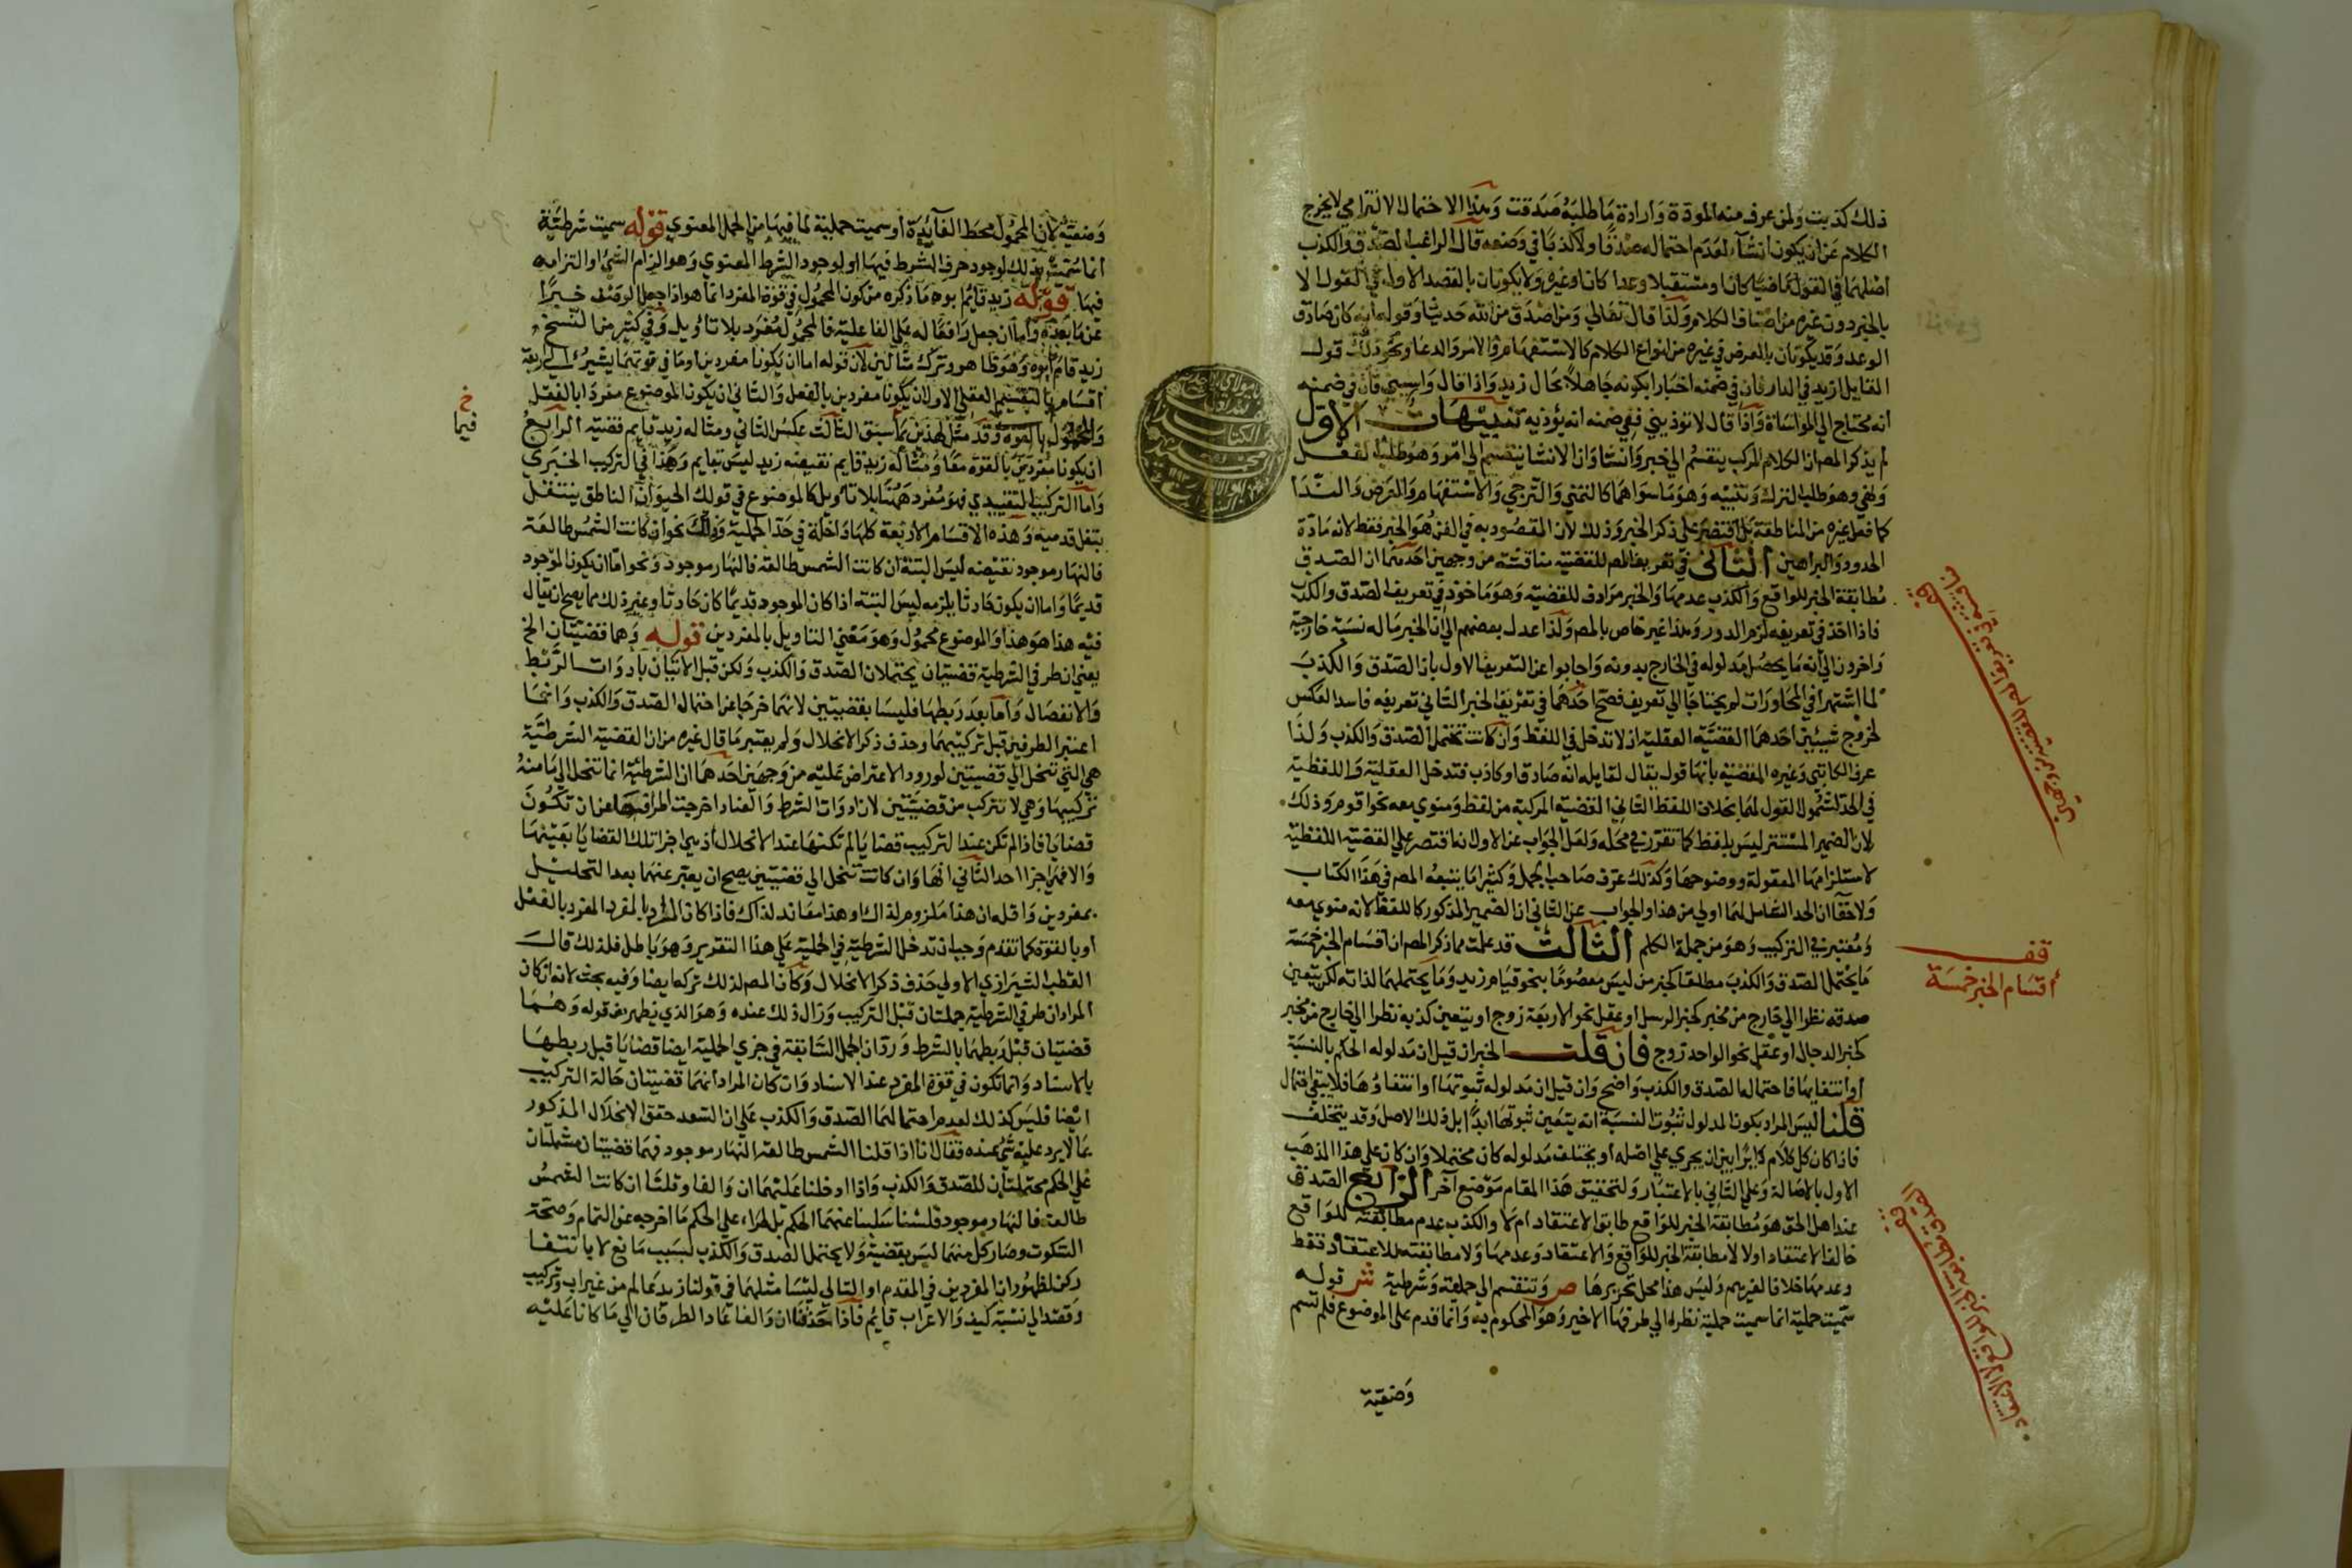 ذلك كذبت ولمن عرف منه المودة وارادة ما طلبه صدقت وهذا الاحتمال الالتزامي لا يخرج
الكلام عن ان يكون انشآء لعدم احتماله صدقا ولا كذبا في وضعه قال الراغب الصدق والكذب
اصلهما في القول ماضيا كان او مستقبلا وعدا كان او غيره ولا يكونان بالقصد الاول في القول الا
بالخبر دون غيره من اصناف الكلام ولذا قال تعالي ومن اصدق من الله حديثا وقوله انه كان صادق
الوعد وقد يكونان بالعرض في غيره من انواع الكلام كالاستفهام والامر والدعا ونحو ذلك قول
القايل ازيد في الدار فان في ضمنه اخبارا بكونه جاهلا بحال زيد واذا قال واسيني فان في ضمنه
انه محتاج الي المواساة واذا قال لا توذيني ففي ضمنه انه يؤذيه تنبيهات الاول
لم يذكر المص ان الكلام المركب ينقسم الي خبر وانشا وان الانشا ينقسم الي امر وهو طلب الفعل
ونهي وهو طلب الترك وتنبيه وهو ما سواهما كالتمني والترجي والاستفهام والعرض والندا
كما فعل غيره من المناطقة بل اقتصر علي ذكر الخبر وذلك لان المقصود به في الفن هو الخبر فقط لانه مادة
الحدود والبراهين الثاني في تعريف المص للقضية مناقشة من وجهين احدهما ان الصدق
مطابقة الخبر للواقع والكذب عدمها والخبر مرادف للقضية وهو ماخوذ في تعريف الصدق والكذب
فاذا اخذ في تعريفه لزم الدور وهذا غير خاص بالمص ولذا عدل بعضهم الي ان الخبر ما له نسبة خارجية
واخرون الي انه ما يحصل مدلوله في الخارج بدونه واجابوا عن التعريف الاول بان الصدق والكذب
لما اشتهرا في المحاورات لم يحتاجا الي تعريف فصح اخذهما في تعريف الخبر الثاني تعريفه فاسد العكس
لخروج شيئين احدهما القضية العقلية اذ لا تدخل في اللفظ وان كانت تحتمل الصدق والكذب ولذا
عرف الكاتبي وغيره القضية بانها قول يقال لقايله انه صادق او كاذب فتدخل العقلية واللفظية
في الحد لشمول القول لهما بخلاف اللفظ الثاني القضية المركبة من لفظ ومنوي معه نحو اقوم وذلك
لان الضمير المستتر ليس بلفظ كما تقرر في محله ولعل الجواب عن الاول انه اقتصر علي القضية اللفظية
لاستلزامها المعقولة ووضوحها وكذلك عرف صاحب الجمل وكثيرا ما يتبعه المص في هذا الكتاب
ولا خفآ ان الحد الشامل لهما اولي من هذا والجواب عن الثاني ان الضمير المذكور كاللفظ لانه منوي معه
ومعتبر في التركيب وهو من جملة الكلم الثالث قد علمت مما ذكر المص ان اقسام الخبر خمسة
ما يحتمل الصدق والكذب مطلقا كخبر من ليس معصوما بنحو قيام زيد وما يحتملهما لذاته لكن يتعين
صدقه نظرا الي خارج من مخبر كخبر الرسل او عقل نحو الاربعة زوج او يتعين كذبه نظرا الي خارج من مخبر
كخبر الدجال او عقل نحو الواحد زوج فان قلت الخبر ان قيل ان مدلوله الحكم بالنسبة
او انتفايها فاحتماله الصدق والكذب واضح وان قيل ان مدلوله ثبوتها او انتفاؤها فلا يبقي احتمال
قلنا ليس المراد بكون المدلول ثبوت النسبة انه يتعين ثبوتها ابدا بل ذلك الاصل وقد يتخلف
فاذا كان كل كلام دايرا بين ان يجري علي اصله او يختلف مدلوله كان محتملا وان كان علي هذا المذهب
الاول بالاصالة وعلي الثاني بالاعتبار ولتحقيق هذا المقام موضع آخر الرابع الصدق
عند اهل الحق هو مطابقة الخبر للواقع طابق الاعتقاد ام لا والكذب عدم مطابقته للواقع
خالف الاعتقاد اولا لا مطابقة الخبر للواقع والاعتقاد وعدمها ولا مطابقته للاعتقاد فقط
وعدمها خلافا لغيرهم وليس هذا محل تحريرها ص وتنقسم الي حملية وشرطية ش قوله
سميت حملية انما سميت حملية نظرا الي طرفها الاخير وهو المحكوم به وانما قدم علي الموضوع فلم تسم
وضعية
قف
اقسام الخبر خمسة
قف
الصدق مطابقة الخبر للواقع لا الاعتقاد
وضعية لان المحمول محط الفآيدة او سميت حملية لما فيها من الحمل المعنوي قوله سميت شرطية
انما سميت بذلك لوجود حرف الشرط فيها او لوجود الشرط المعنوي وهو الزام الشي او التزامه
فيها قوله زيد قايم ابوه ما ذكره من كون المحمول في قوة المفرد انما هو اذا جعل الوصف خبرا
عن ما بعده واما ان جعل رافعا له علي الفاعلية فالمحمول مفرد بلا تاويل وفي كثير من النسخ
زيد قام ابوه وهو ظاهر وترك مثالين لان قوله اما ان يكونا مفردين او ما في قوتهما يشير الي اربعة
اقسام بالتقسيم العقلي الاول ان يكونا مفردين بالفعل والثاني ان يكون الموضوع مفردا بالفعل
والمحمول بالقوة وقد مثل لهذين بما سبق الثالث عكس الثاني ومثاله زيد قايم قضية الرابع
ان يكونا مفردين بالقوة معا ومثاله زيد قايم نقيضه زيد ليس بقايم وهذا في التركيب الخبري
واما التركيب التقييدي فهو مفرد هنا بلا تاويل كالموضوع في قولك الحيوان الناطق ينتقل
بنقل قدميه وهذه الاقسام الاربعة كلها داخلة في حد الحملية وذلك نحو ان كانت الشمس طالعة
فالنهار موجود نقيضه ليس البتة ان كانت الشمس طالعة فالنهار موجود ونحو اما ان يكون الموجود
قديما واما ان يكون حادثا يلزمه ليس البتة اذا كان الموجود قديما كان حادثا وغير ذلك مما يصح ان يقال
فيه هذا هو هذا والموضوع محمول وهو معني التاويل بالمفردين قوله وهما قضيتان الخ
يعني ان طرفي الشرطية قضيتان يحتملان الصدق والكذب ولكن قبل الاتيان بادوات الربط
والانفصال واما بعد ربطها فليسا بقضيتين لانهما خرجا عن احتمال الصدق والكذب وانما
اعتبر الطرفين قبل تركيبهما وحذف ذكر الانحلال ولم يعتبر ما قال غيره من ان القضية الشرطية
هي التي تنحل الي قضيتين لورود الاعتراض عليه من وجهين احدهما ان الشرطية انما تنحل الي ما منه
تركيبها وهي لا تتركب من قضيتين لان ادوات الشرط والعناد اخرجت اطرافها عن ان تكون
قضايا فاذا لم تكن عند التركيب قضايا لم تكنها عند الانحلال اذ هي اجزا تلك القضايا بعينها
والا فهي اجزا احد الثاني انها وان كانت تنحل الي قضيتين يصح ان يعبر عنهما بعد التحليل
بمفردين واقله ان هذا ملزوم لذاك او هذا معاند لذاك فاذا كان المراد بالمفرد المفرد بالفعل
او بالقوة كما تقدم وجب ان تدخل الشرطية في الحملية علي هذا التقرير وهو باطل فلذلك قال
القطب الشيرازي الاولي حذف ذكر الانحلال وكان المص لذلك تركه ايضا وفيه بحث لانه ان كان
المراد ان طرفي الشرطية جملتان قبل التركيب وزال ذلك عنده وهو الذي يظهر من قوله وهما
قضيتان قبل ربطهما بالشرط ورد ان الجمل السابقة في جزي الحملية ايضا قضايا قبل ربطها
بالاسناد وانما تكون في قوة المفرد عند الاسناد وان كان المراد انهما قضيتان حالة التركيب
ايضا فليس كذلك لعدم احتمالهما الصدق والكذب علي ان السعد حقق الانحلال المذكور
بما لا يرد عليه شي عنده فقال انا اذا قلنا الشمس طالعة النهار موجود فهما قضيتان مشتملتان
علي الحكم محتملتان للصدق والكذب واذا ادخلنا عليهما ان والفا وقلنا ان كانت الشمس
طالعة فالنهار موجود فلسنا سلبنا عنهما الحكم بل طرا علي الحكم ما اخرجه عن التمام وصحة
السكوت وصار كل منهما ليس بقضية ولا يحتمل الصدق والكذب لسبب مانع لا بانتفا
ركن لظهور ان المفردين في المقدم او التالي ليسا مثلهما في قولنا زيد عالم من غير اب وتركيب
وقصد الي نسبة كيف والاعراب قايم فاذا حذفنا ان والفا عاد الطرفان الي ما كانا عليه
خ
فيما